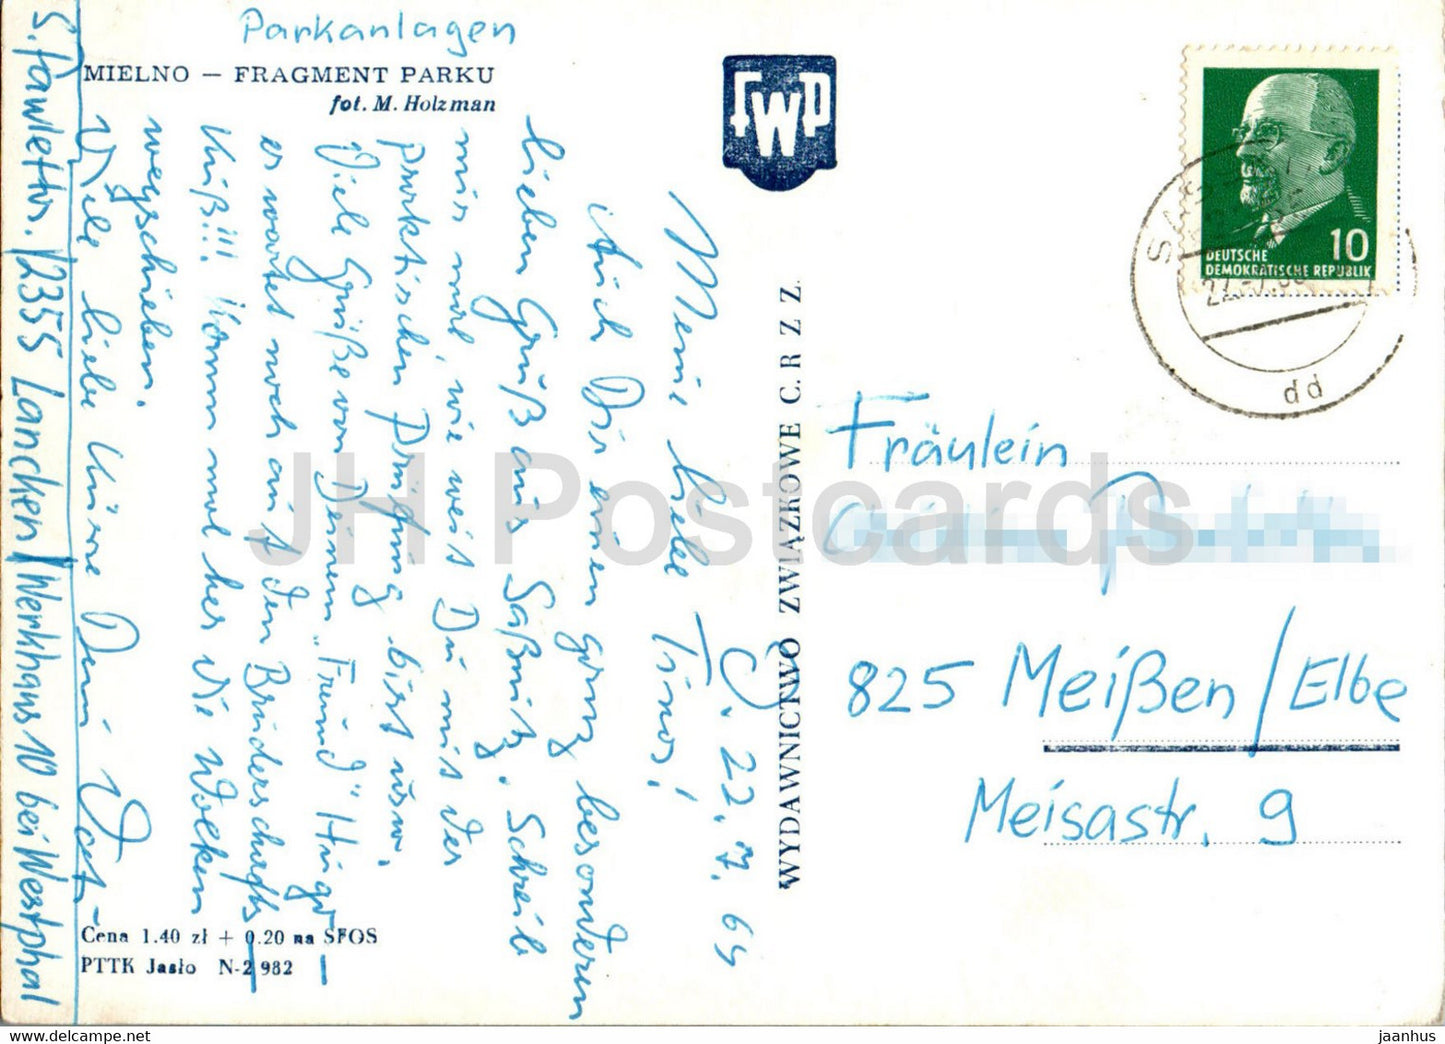 Parkanlagen
MIELNO — FRAGMENT PARKU
fot. M. Holzman
FWP
DEUTSCHE
DEMOKRATISCHE REPUBLIK
10
dd
22.7.69
Meine liebe
Auch Dir einen ganz besonderen
lieben Gruß aus Saßnitz. Schreib
mir mal, wie weit Du mit der
praktischen Prüfung bist usw.
Viele Grüße von Deinem „Freund" Hugo
er wartet noch auf den Brüderschafts-
Kuß!!! Komm mal her die Wolken
wegschieben.
Viele liebe Küsse Dein
2355 Lancken/Werkhaus 10 bei Westphal
Cena 1.40 zł + 0.20 na SFOS
PTTK Jasło N-2982
WYDAWNICTWO ZWIĄZKOWE C. R. Z. Z.
Fräulein
825 Meißen/Elbe
Meisastr. 9
JH Postcards
jaanhus